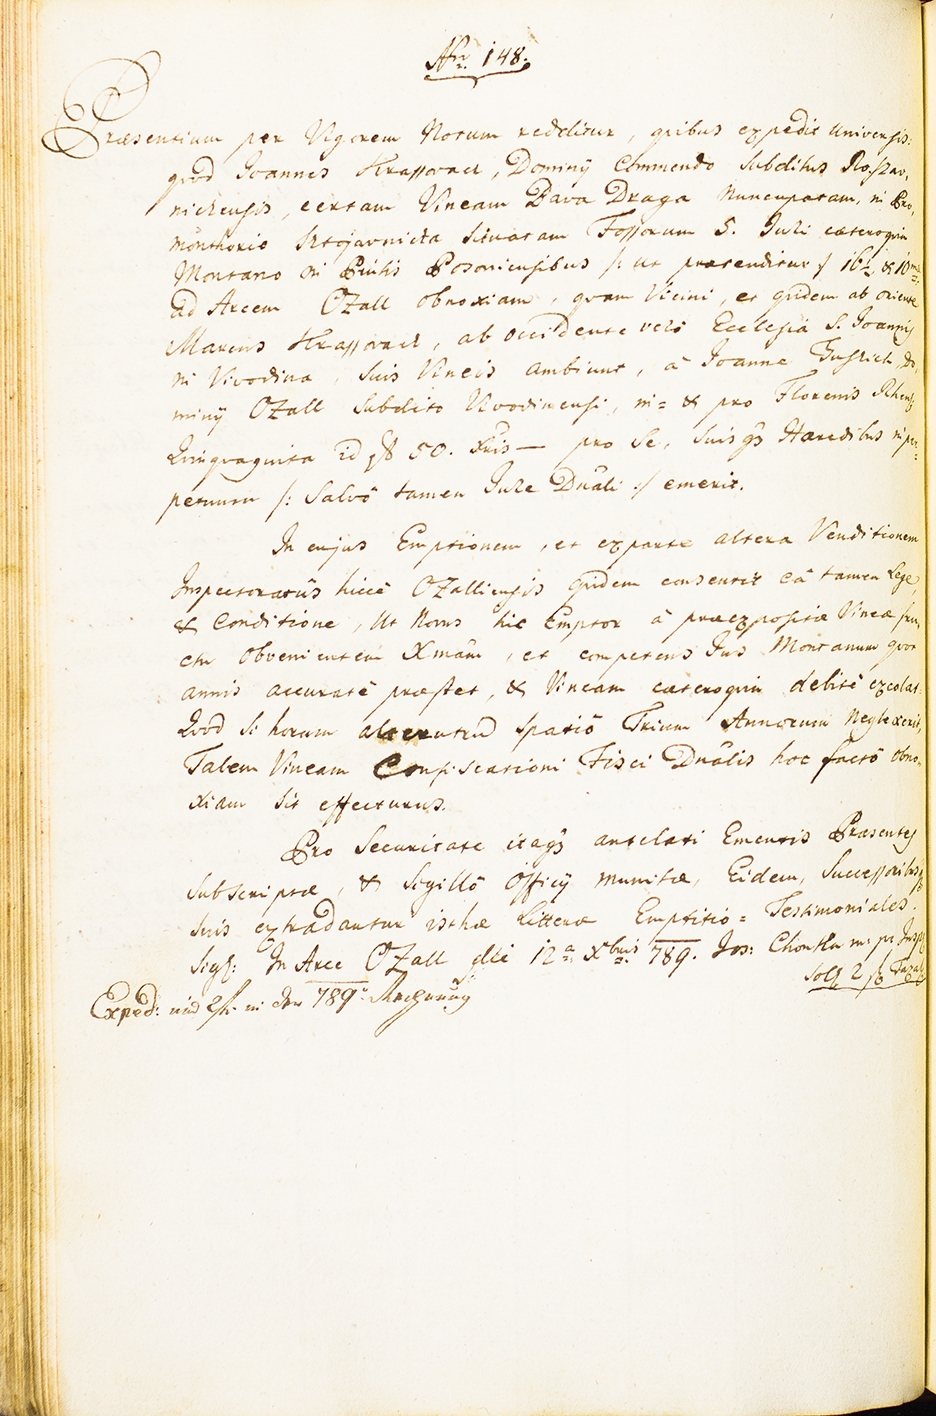 Nr. 148.
Præsentium per Vigorem Notum redditur, quibus expedit Universis:
quod Joannes Krassovacz, Dominÿ Commendo Subditus
certam Vineam Dava Draga Nuncupatam, in Pro,
monthorio Sztojavnicka Situatam Fossorum 5. Juri cæteroquin
Montano in Pintis Posoniensibus /: ut prætenditur :/ 16 & 10ma
ad Arcem OZall obnoxiam, quam Vicini, et quidem ab oriente
Marcus Krassovacz, ab occidente verò Ecclesia S. Joannis
in Vivodina, Suis Vineis ambiunt, â Joanne Do,
minÿ OZall Subdito Vivodinensi, in = & pro Florenis Rhens:
Quinquaginta id est 50. Xris — pro Se, Suisq3 Hæredibus in per=
petuum /: Salvô tamen Jure Dnāli :/ emerit.
In cujus Emptionem, et exparte altera Venditionem
Inspectoratûs hicce OZalliensis quidem consentit eâ tamen Lege,
& Conditione, Ut Novus hic Emptor â præexposita Vinea fru,
ctu obvenientem Xmam, et competens Jus Montanum quot
annis accuratè præstet, & Vineam cæteroquin debitè excolat.
Quod Si horum alterutrum Spatiô Trium Annorum Neglexerit,
Talem Vineam Confiscationi Fisci Dnālis hoc factô obno,
xiam Sit effecturus.
Pro Securitate itaq3 antelati Ementis Præsentes
Subscriptæ, & Sigillô Officÿ munitæ, Eidem, Successoribusq3
Suis extradantur isthæ Litteræ Emptitio = Testimoniales.
Sigl: In Arce OZall die 12a Xbris 789. Jos: m: pr Insp:
Solt 2 f Taxa
Exped: sind 2f. in der 789er Rechnung